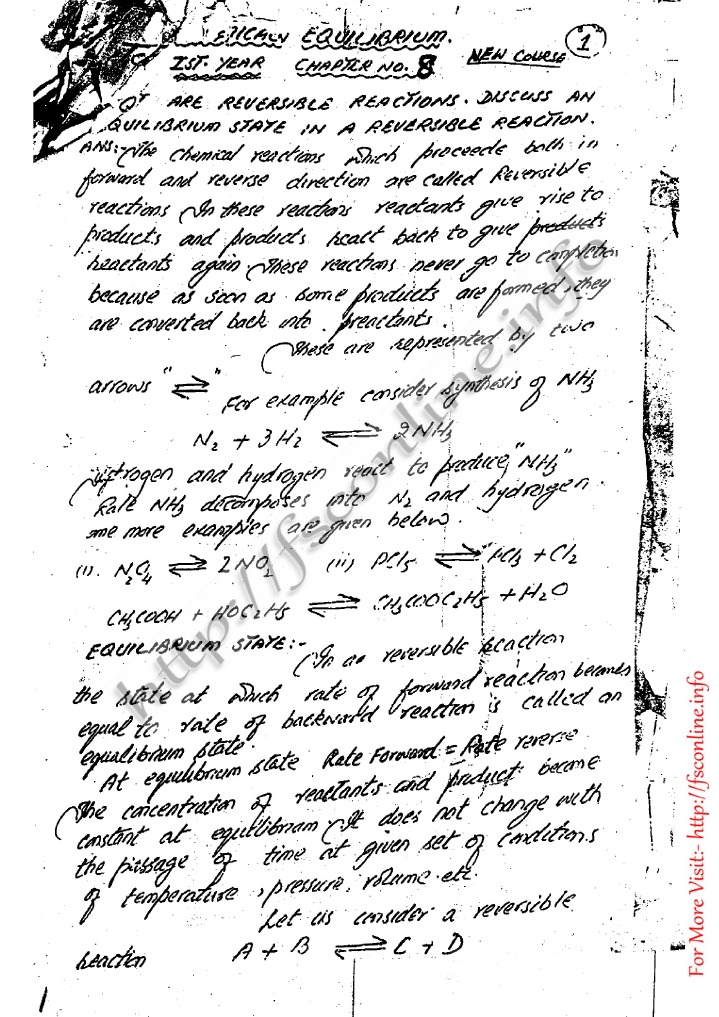 EQUILIBRIUM.
1
IST. YEAR CHAPTER NO. 8 NEW COURSE
ARE REVERSIBLE REACTIONS. DISCUSS AN
QUILIBRIUM STATE IN A REVERSIBLE REACTION.
ANS:- The chemical reactions which proceede both in
forward and reverse direction are called Reversible
reactions In these reactions reactants give rise to
products and products react back to give products
reactants again These reactions never go to completion
because as soon as some products are formed, they
are converted back into reactants.
These are represented by two
arrows "⇌"
For example consider synthesis of NH3
N2 + 3H2 ⇌ 2NH3
and hydrogen react to produce "NH3"
NH3 decomposes into N2 and
more examples are given below.
(i). N2O4 ⇌ 2NO2 (ii) PCl5 ⇌ PCl3 + Cl2
CH3COOH + HOC2H5 ⇌ CH3COOC2H5 + H2O
EQUILIBRIUM STATE:-
In a reversible reaction
the state at which rate of forward reaction becomes
equal to rate of backward reaction is called an
equalibrium state.
At equilibrium state Rate Forward = Rate reverse
The concentration of reactants and product become
constant at equilibriam It does not change with
the passage of time at given set of conditions
of temperature, pressure, volume. etc.
Let us consider a reversible
reaction A + B ⇌ C + D
1
http://fsconline.info
For More Visit:- http://fsconline.info